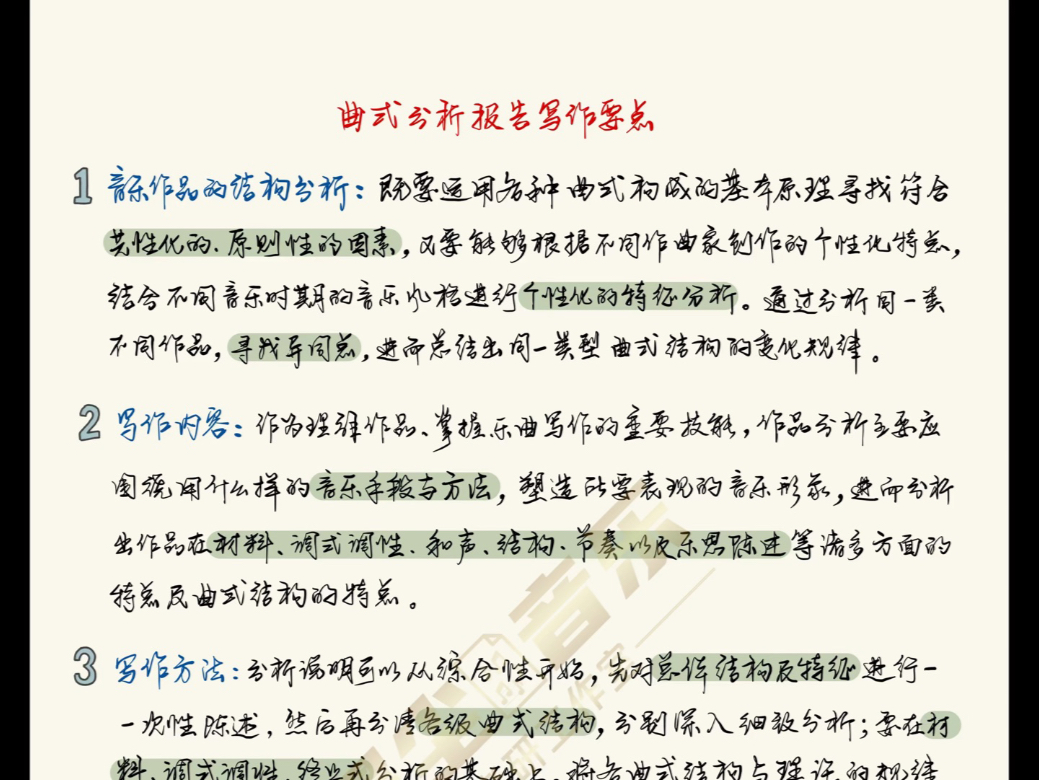 曲式分析报告写作要点
1 音乐作品的结构分析：既要运用各种曲式构成的基本原理寻找符合
共性化的、原则性的因素，又要能够根据不同作曲家创作的个性化特点，
结合不同音乐时期的音乐风格进行个性化的特征分析。通过分析同一类
不同作品，寻找异同点，进而总结出同一类型曲式结构的变化规律。
2 写作内容：作为理解作品、掌握乐曲写作的重要技能，作品分析主要应
围绕用什么样的音乐手段与方法，塑造所要表现的音乐形象，进而分析
出作品在材料、调式调性、和声、结构、节奏以及乐思陈述等诸多方面的
特点及曲式结构的特点。
3 写作方法：分析说明可以从综合性开始，先对总体结构及特征进行一
一次性陈述，然后再分清各级曲式结构，分别深入细致分析；要在材
料、调式调性、终止式分析的基础上，将各曲式结构与理论的规律
音乐
工作室